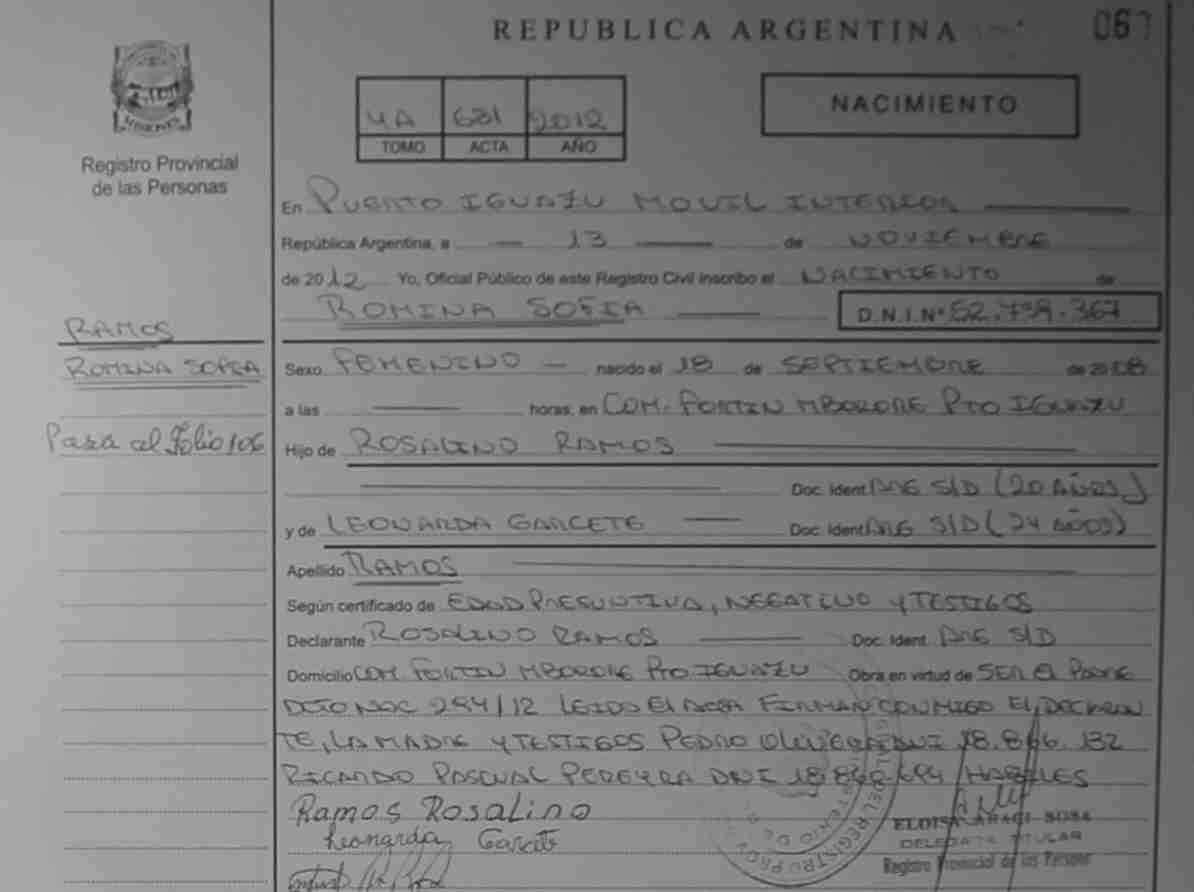 REPUBLICA ARGENTINA
MISIONES
Registro Provincial
de las Personas
4A 681 2012
TOMO ACTA AÑO
NACIMIENTO
En PUERTO IGUAZU MOVIL INTERIOR
República Argentina, a 13 de NOVIEMBRE
de 2012 Yo, Oficial Público de este Registro Civil inscribo el NACIMIENTO de
ROMINA SOFIA
D.N.I.Nº 52.739.367
RAMOS
ROMINA SOFIA
Pasa al Folio 106
Sexo FEMENINO nacido el 18 de SEPTIEMBRE de 2008
a las horas, en COM. FORTIN MBORORE PTO IGUAZU
Hijo de ROSALINO RAMOS
Doc. Ident. ARG S/D (20 AÑOS)
y de LEONARDA GARCETE Doc. Ident. ARG S/D (24 AÑOS)
Apellido RAMOS
Según certificado de EDAD PRESUNTIVA, NEGATIVO Y TESTIGOS
Declarante ROSALINO RAMOS Doc. Ident. ARG S/D
Domicilio COM FORTIN MBORORE PTO IGUAZU Obra en virtud de SER EL PADRE
294/12 LEIDO EL ACTA FIRMAN CONMIGO EL DECLARAN
TE, LA MADRE Y TESTIGOS PEDRO OLIVERA DNI 18.866.132
RICARDO PASCUAL PEREYRA DNI HABILES
Ramos Rosalino
Leonarda Garcete
ELOISA SOSA
DELEGADA TITULAR
Registro Provincial de las Personas